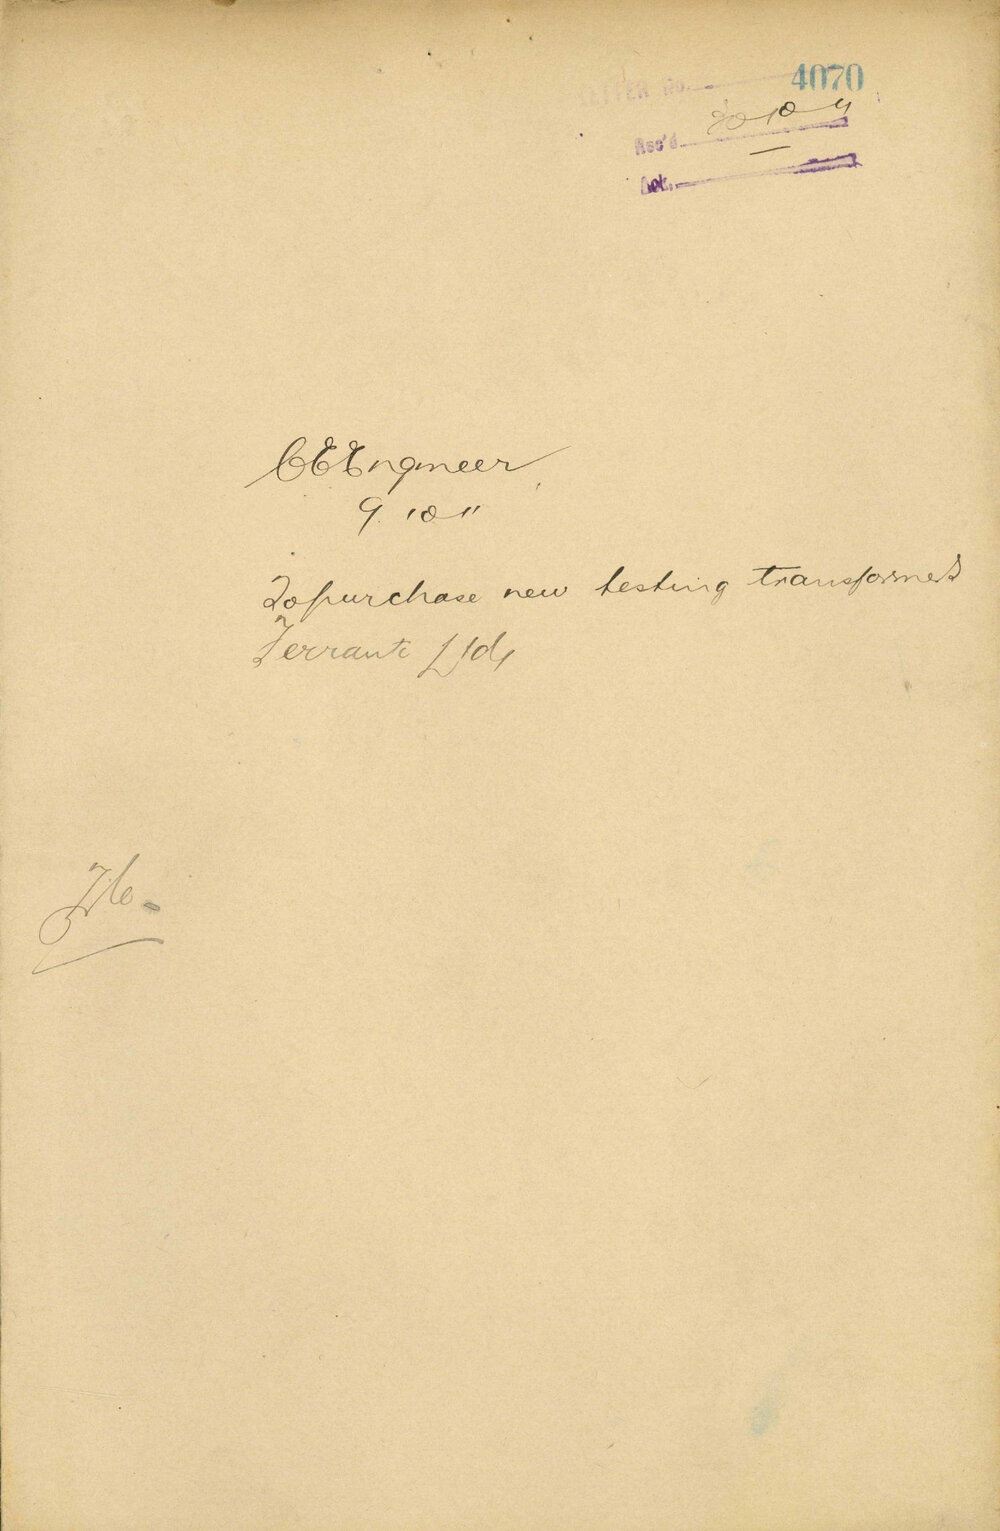 LETTER No. 4070
Rec'd. 30 10 11
Ack.
C E Engineer
9. 10 11
To purchase new testing transformers
Ferranti Ltd,